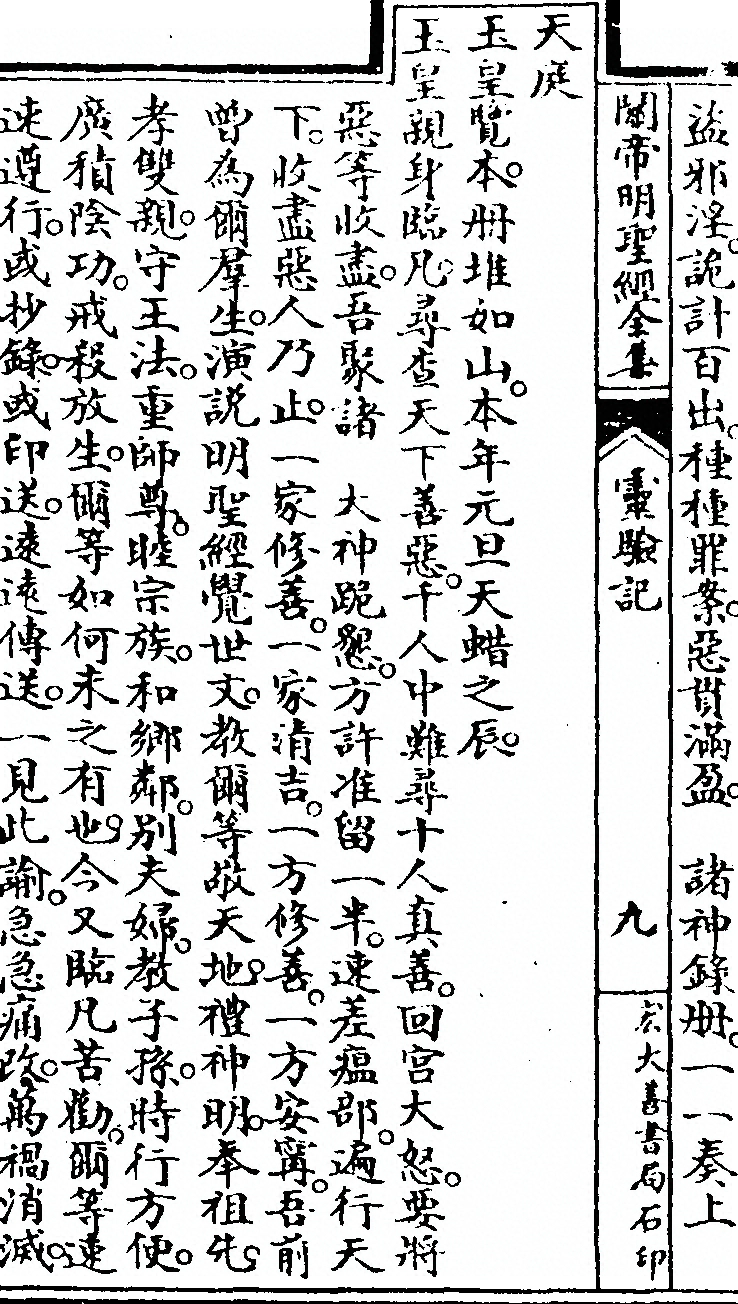 盜邪淫。詭計百出。種種罪案。惡貫滿盈。　諸神錄册。一一奏上
關帝明聖經全集　靈驗記　九　宏大善書局石印
天庭
玉皇覽。本册堆如山。本年元旦天蜡之辰。
玉皇親身臨凡。尋查天下善惡。千人中難尋十人真善。回宮大怒。要將
惡等收盡。吾聚諸　大神跪懇。方許准留一半。速差瘟部。遍行天
下。收盡惡人乃止。一家修善。一家清吉。一方修善。一方安寧。吾前
曾為爾羣生。演説明聖經覺世文。教爾等敬天地。禮神明。奉祖先。
孝雙親。守王法。重師尊。睦宗族。和鄉鄰。別夫婦。教子孫。時行方便。
廣積陰功。戒殺放生。爾等如何未之有也。今又臨凡苦勸。爾等速
速遵行。或抄錄。或印送。遠遠傳送。一見此諭。急急痛改。萬禍消滅。